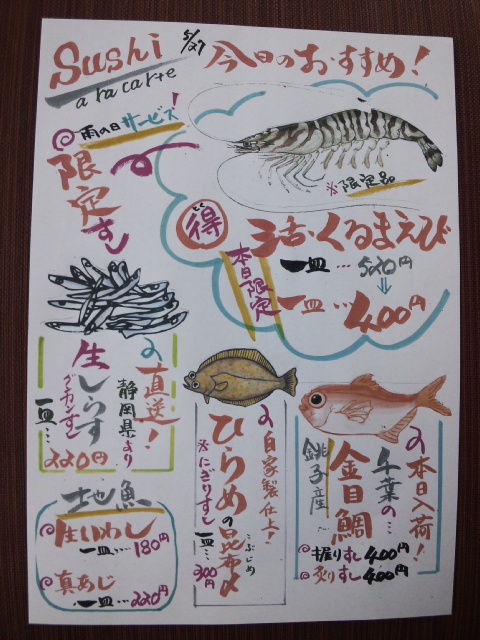 Sushi
a la carte
5/27
今日のおすすめ!
雨の日サービス!
限定すし
※限定品
得
活・くるまえび
本日限定
一皿…520円
⇓
一皿…400円
直送!
静岡県より
生しらす
グンカンすし
一皿…
220円
自家製仕上!
ひらめの昆布〆
こぶじめ
※にぎりすし
一皿…
300円
本日入荷!
千葉の…
金目鯛
銚子産
握りすし400円
炙りすし400円
地魚
生いわし
一皿…180円
真あじ
一皿…220円